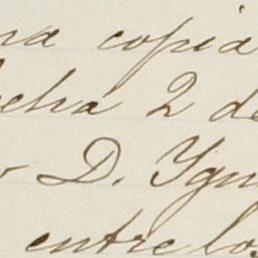 na copia
fecha 2 de
D. Ygn
entre los